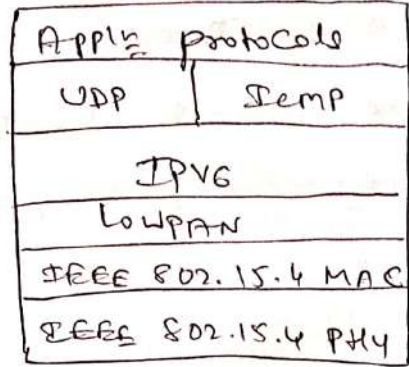 Appln protocols
UDP Icmp
IPV6
LOWPAN
IEEE 802.15.4 MAC
IEEE 802.15.4 PHY